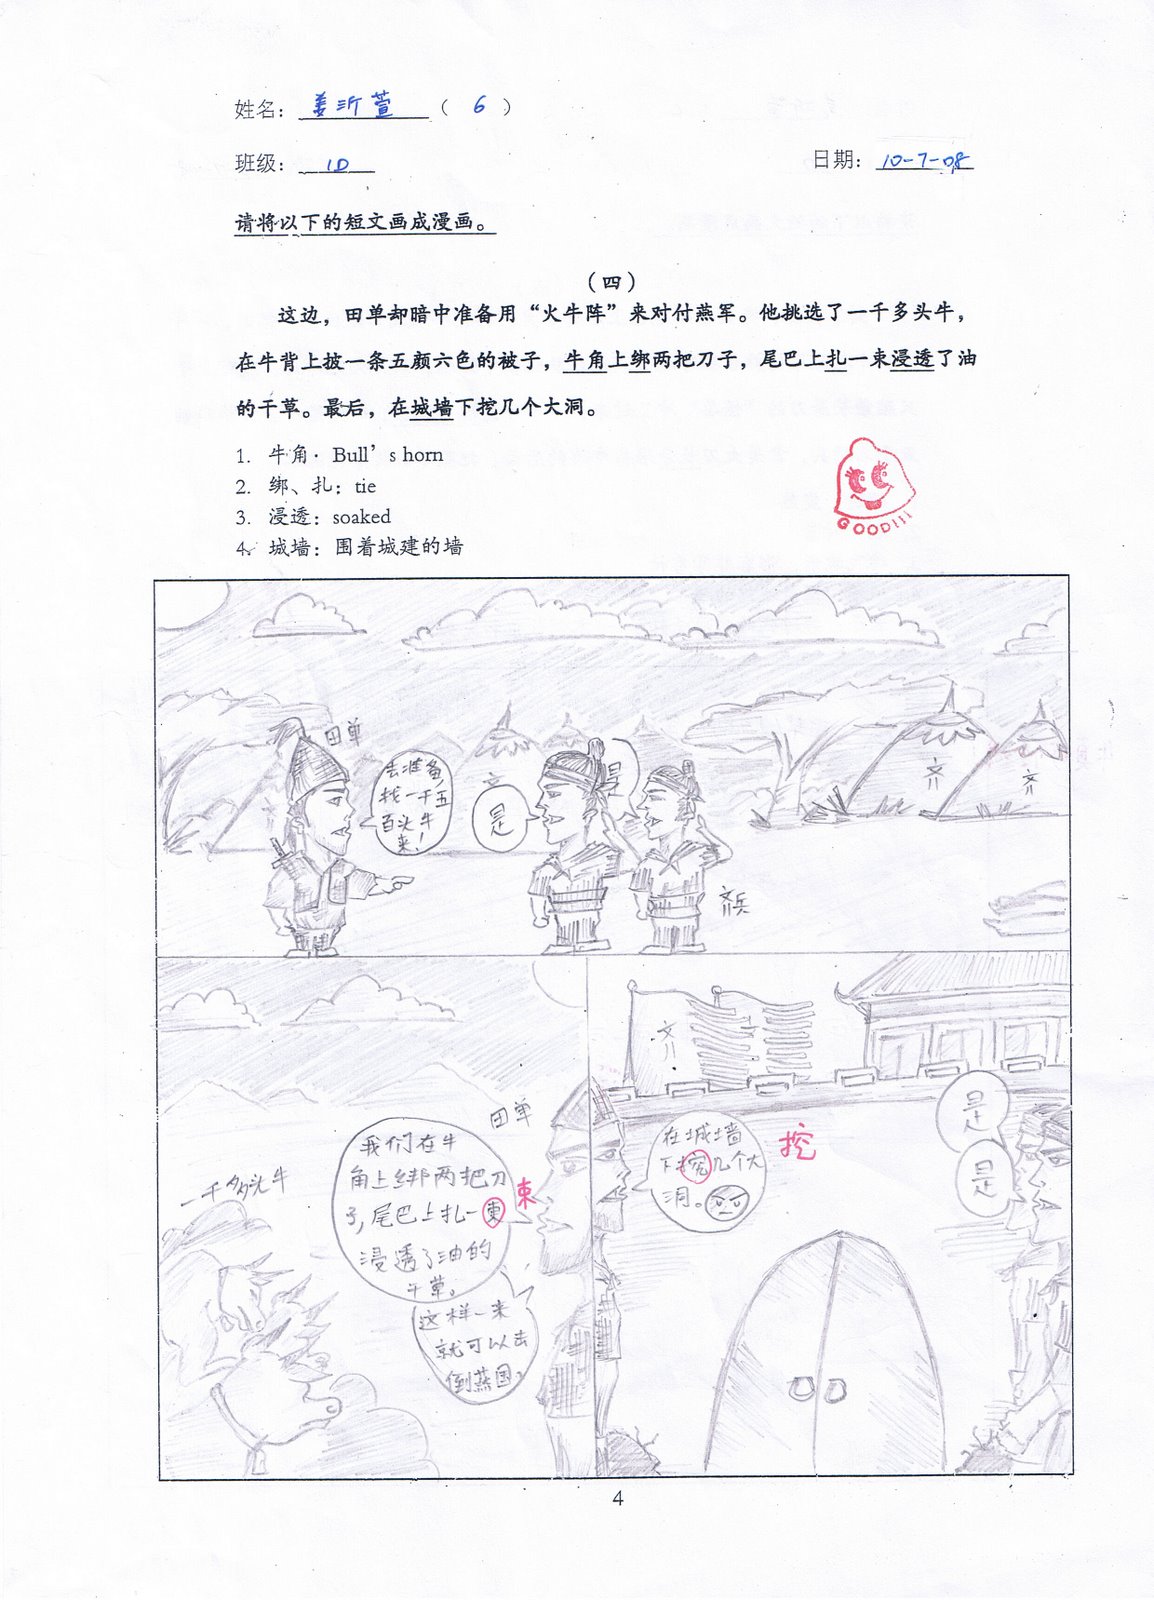 姓名：姜沂萱（6）
班级：1D
日期：10-7-08
请将以下的短文画成漫画。
（四）
这边，田单却暗中准备用“火牛阵”来对付燕军。他挑选了一千多头牛，
在牛背上披一条五颜六色的被子，牛角上绑两把刀子，尾巴上扎一束浸透了油
的干草。最后，在城墙下挖几个大洞。
1. 牛角· Bull’s horn
2. 绑、扎：tie
3. 浸透：soaked
4. 城墙：围着城建的墙
GOOD!!!
田单
去准备
找一千五
百头牛
来！
齐
是
是
齐
齐
齐兵
一千多头牛
田单
我们在牛
角上绑两把刀
子，尾巴上扎一束
浸透了油的
干草。
束
这样一来
就可以去
倒燕国。
齐
在城墙
下挖几个大
洞。
挖
是
是
4